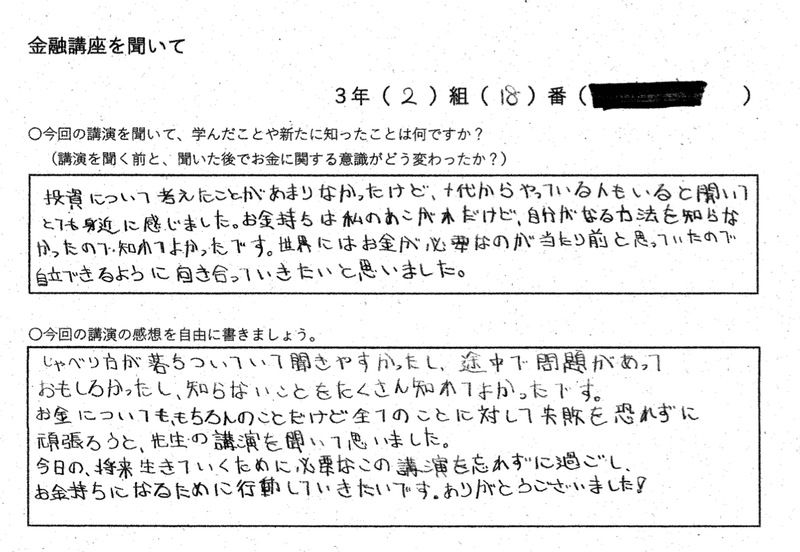 金融講座を聞いて
3年（2）組（18）番（ ）
○今回の講演を聞いて、学んだことや新たに知ったことは何ですか？
（講演を聞く前と、聞いた後でお金に関する意識がどう変わったか？）
投資について考えたことがあまりなかったけど、十代からやっている人もいると聞いて
とても身近に感じました。お金持ちは私のあこがれだけど、自分がなる方法を知らな
かったので知れてよかったです。世界にはお金が必要なのが当たり前と思っていたので
自立できるように向き合っていきたいと思いました。
○今回の講演の感想を自由に書きましょう。
じゃべり方が落ちついていて聞きやすかったし、途中で問題があって
おもしろかったし、知らないことをたくさん知れてよかったです。
お金についても、もちろんのことだけど全てのことに対して失敗を恐れずに
頑張ろうと、先生の講演を聞いて思いました。
今日の、将来生きていくために必要なこの講演を忘れずに過ごし、
お金持ちになるために行動していきたいです。ありがとうございました!